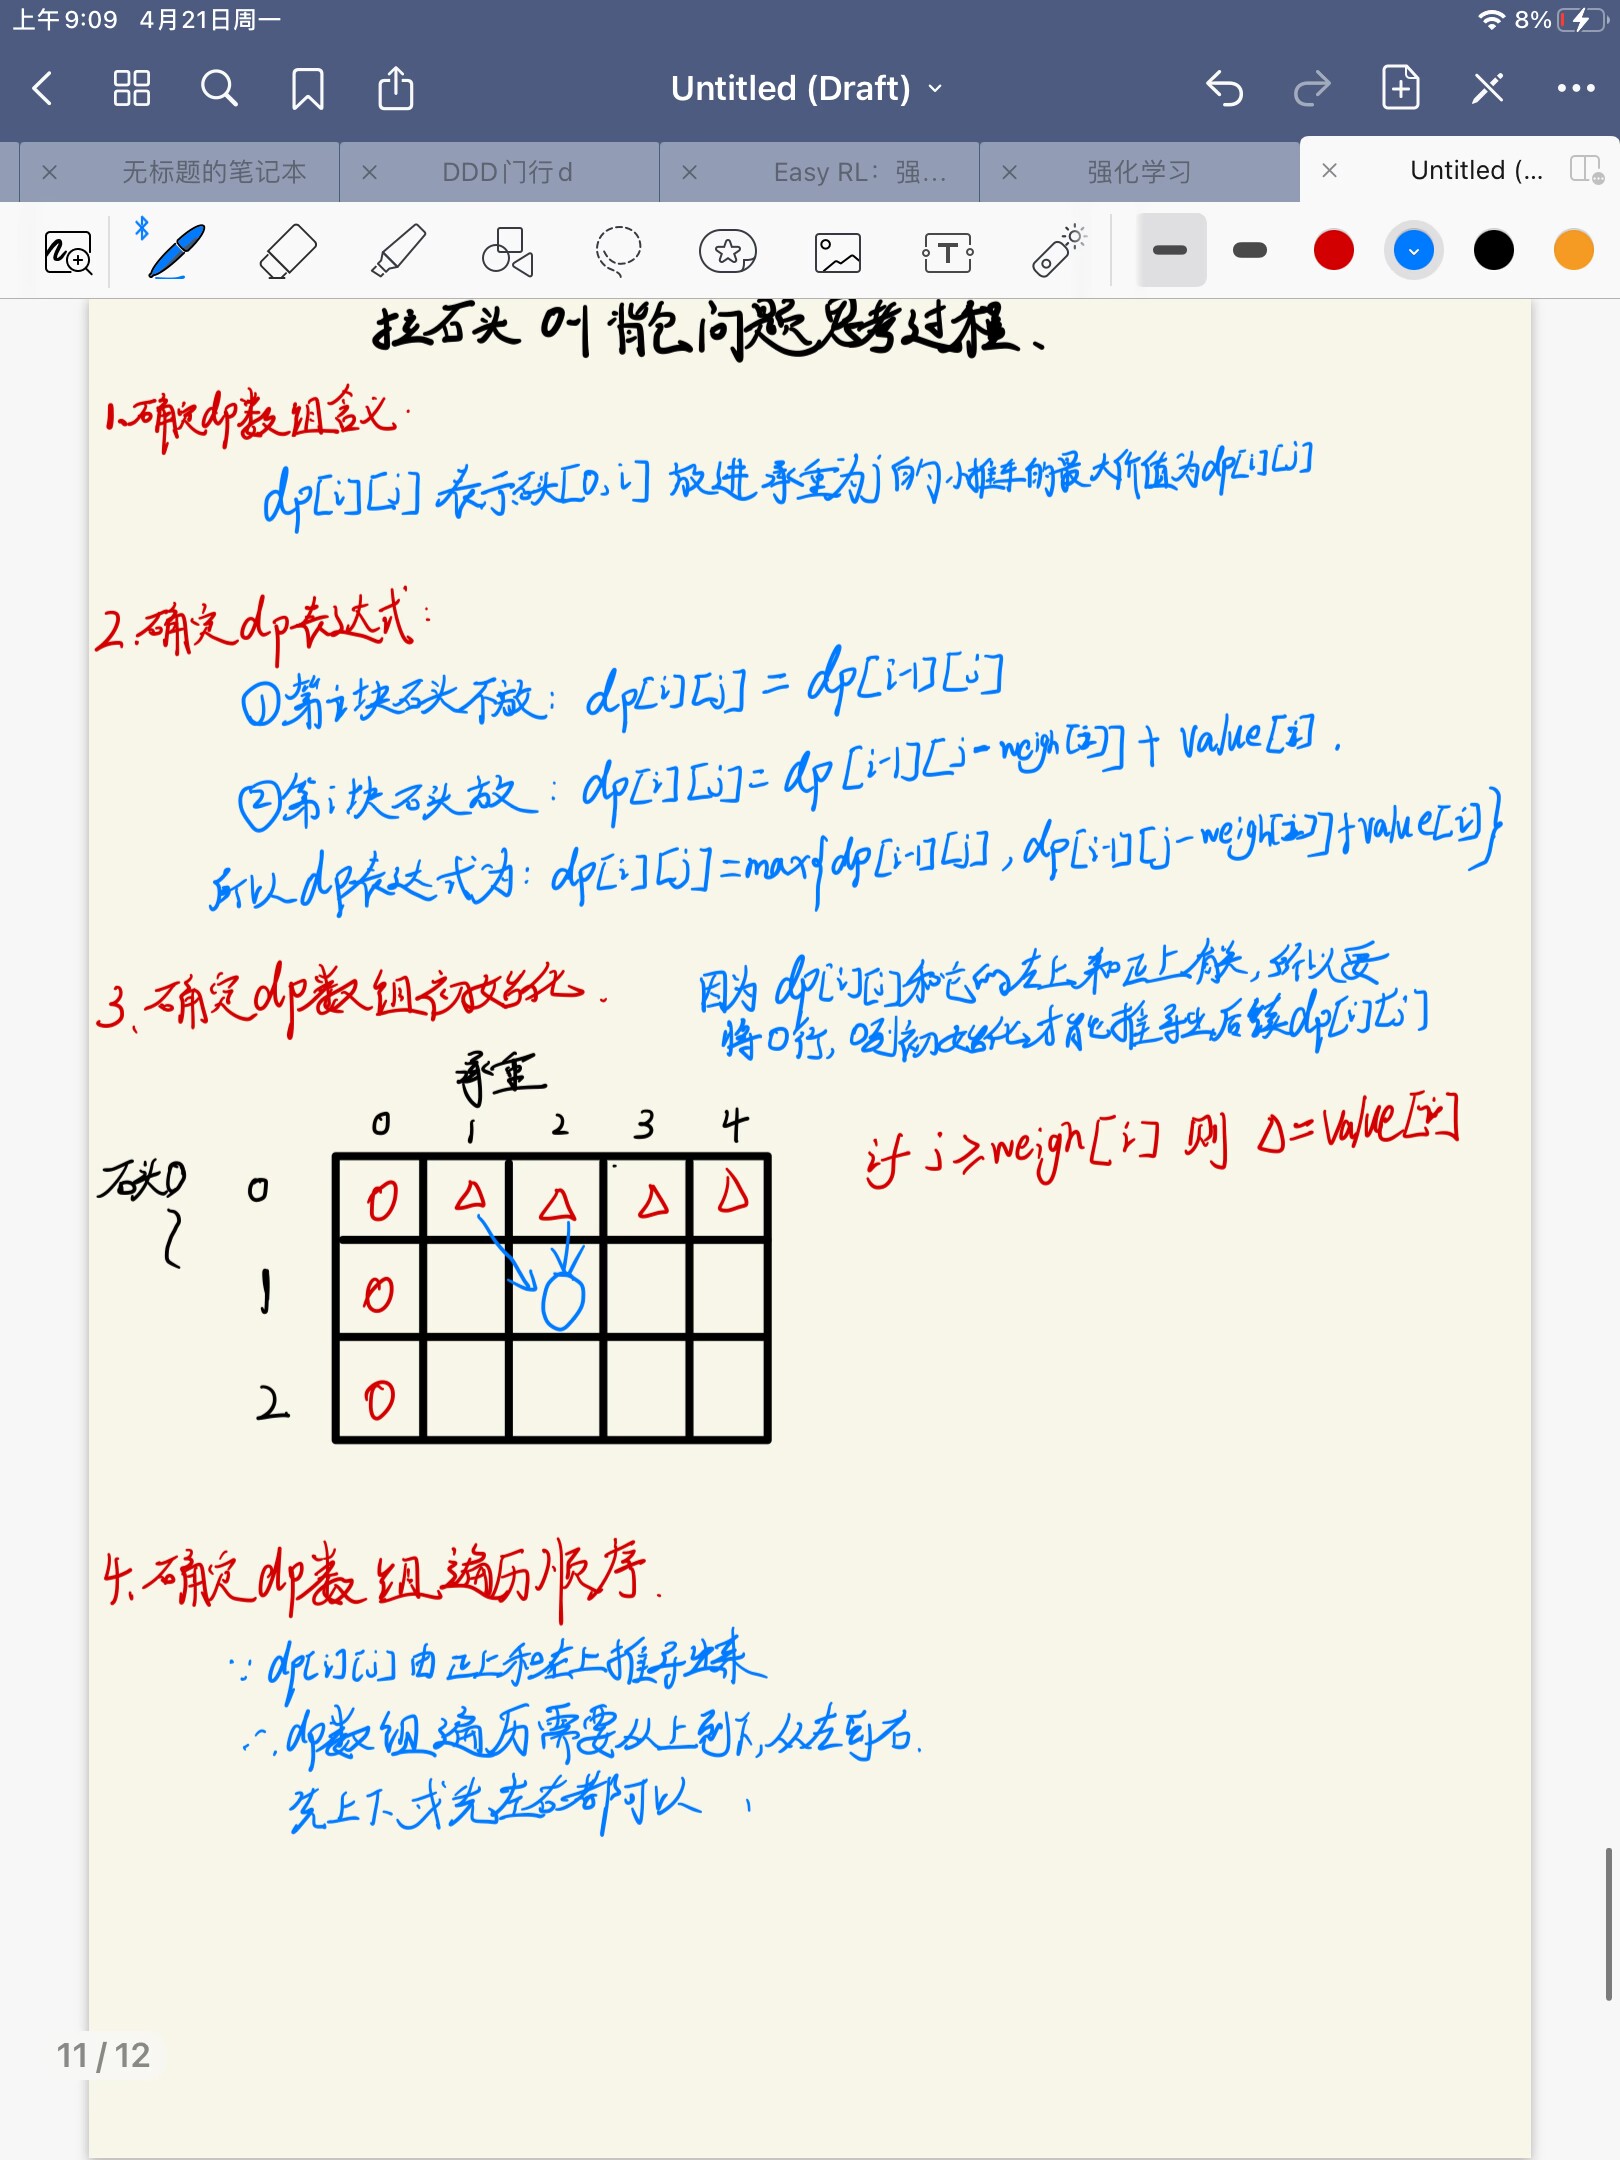 上午9:09 4月21日周一
8%
Untitled (Draft)
无标题的笔记本
DDD门行d
Easy RL：强…
强化学习
Untitled (...
T
拉石头 0-1背包问题思考过程、
1、确定dp数组含义.
dp[i][j] 表示石头[0,i] 放进承重为j的小推车的最大价值为dp[i][j]
2.确定dp表达式:
①第i块石头不放: dp[i][j] = dp[i-1][j]
②第i块石头放: dp[i][j] = dp[i-1][j-weigh[i]] + value[i].
所以dp表达式为: dp[i][j]=max{dp[i-1][j], dp[i-1][j-weigh[i]]+value[i]}
3、确定dp数组初始化.
因为dp[i][j]和它的左上和正上有关,所以要
将0行,0列初始化,才能推导出后续dp[i][j]
承重
0 1 2 3 4
if j≥weigh[i] 则 Δ=value[i]
石头0 0 0 Δ Δ Δ Δ
1 0
2 0
4、确定dp数组遍历顺序.
∵ dp[i][j]由正上和左上推导出来
∴ dp数组遍历需要从上到下,从左到右.
先上下或先左右都可以、
11 / 12